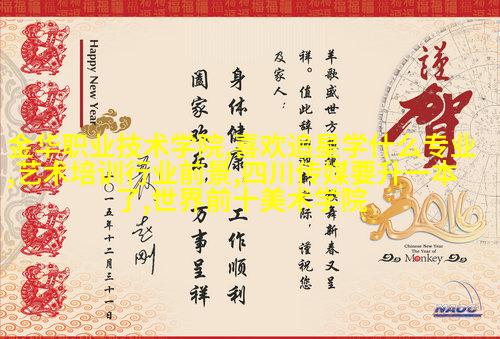 謹
賀
2016
Chinese New Year
The Year of
Monkey
NAOC
羊歌盛世方
舞新春又呈
祥。值此辞
迎新之际，谨祝您
及家人：
身体健康 工作顺利
阖家欢乐，万事呈祥
二〇一五年十二月三十一日
Happy New Year
金华职业技术学院,喜欢追星学什么专业
,艺术培训行业前景,四川传媒要升一本
了,世界前十美术学院